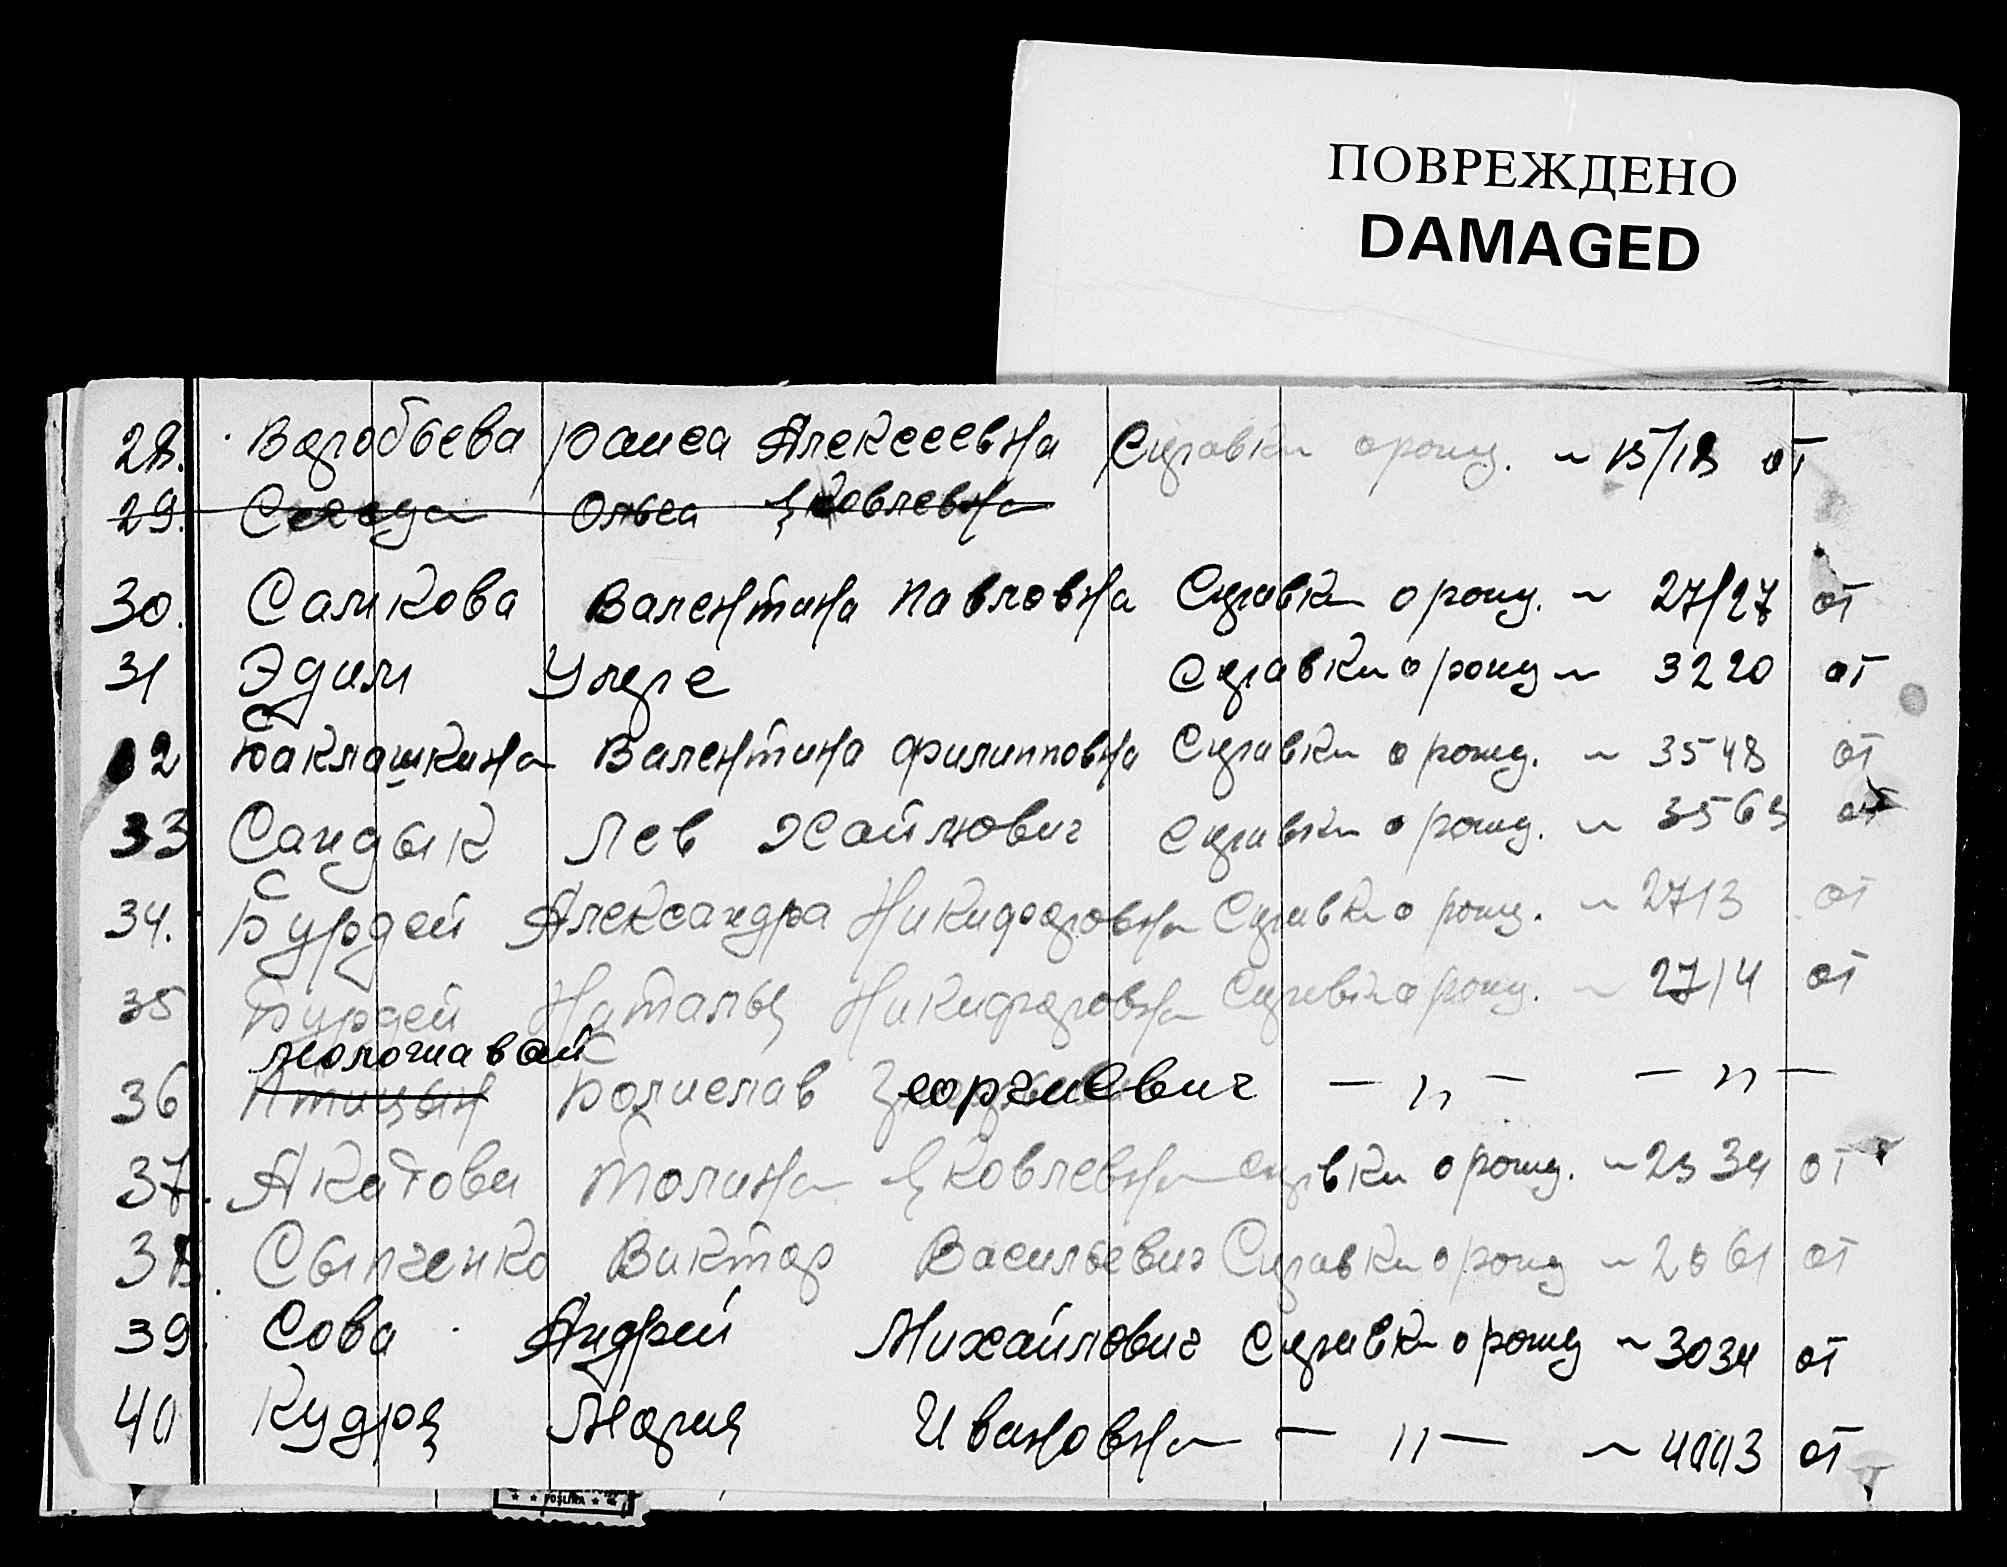 ПОВРЕЖДЕНО
DAMAGED
28. Воробьева Раиса Алексеевна Справки о рожд. ~ 15/18 от
29. Ольга Яковлевна
30. Салкова Валентина Павловна Справки о рожд. ~ 27/27 от
31 Эдим Умре Справки о рожд ~ 3220 от
2 Баклашкина Валентина Филипповна Справки о рожд. ~ 3548 от
33 Сандык Лев Хаймович Справки о рожд. ~ 3563 от
34. Бурдей Александра Никифоровна Справки о рожд. ~ 2713 от
35 Бурдей Наталья Никифоровна Справки о рожд. ~ 2714 от
Мологиавай
36 Птицын Болислав еоргиевич — " — — " —
37. Акатова Толина Яковлевна Справки о рожд. ~ 2334 от
38. Сыпченко Виктор Васильевич Справки о рожд ~ 2061 от
39. Сова Андрей Михайлович Справки о рожд ~ 3034 от
40 Кудря Мария Ивановна — " — ~ 4003 от